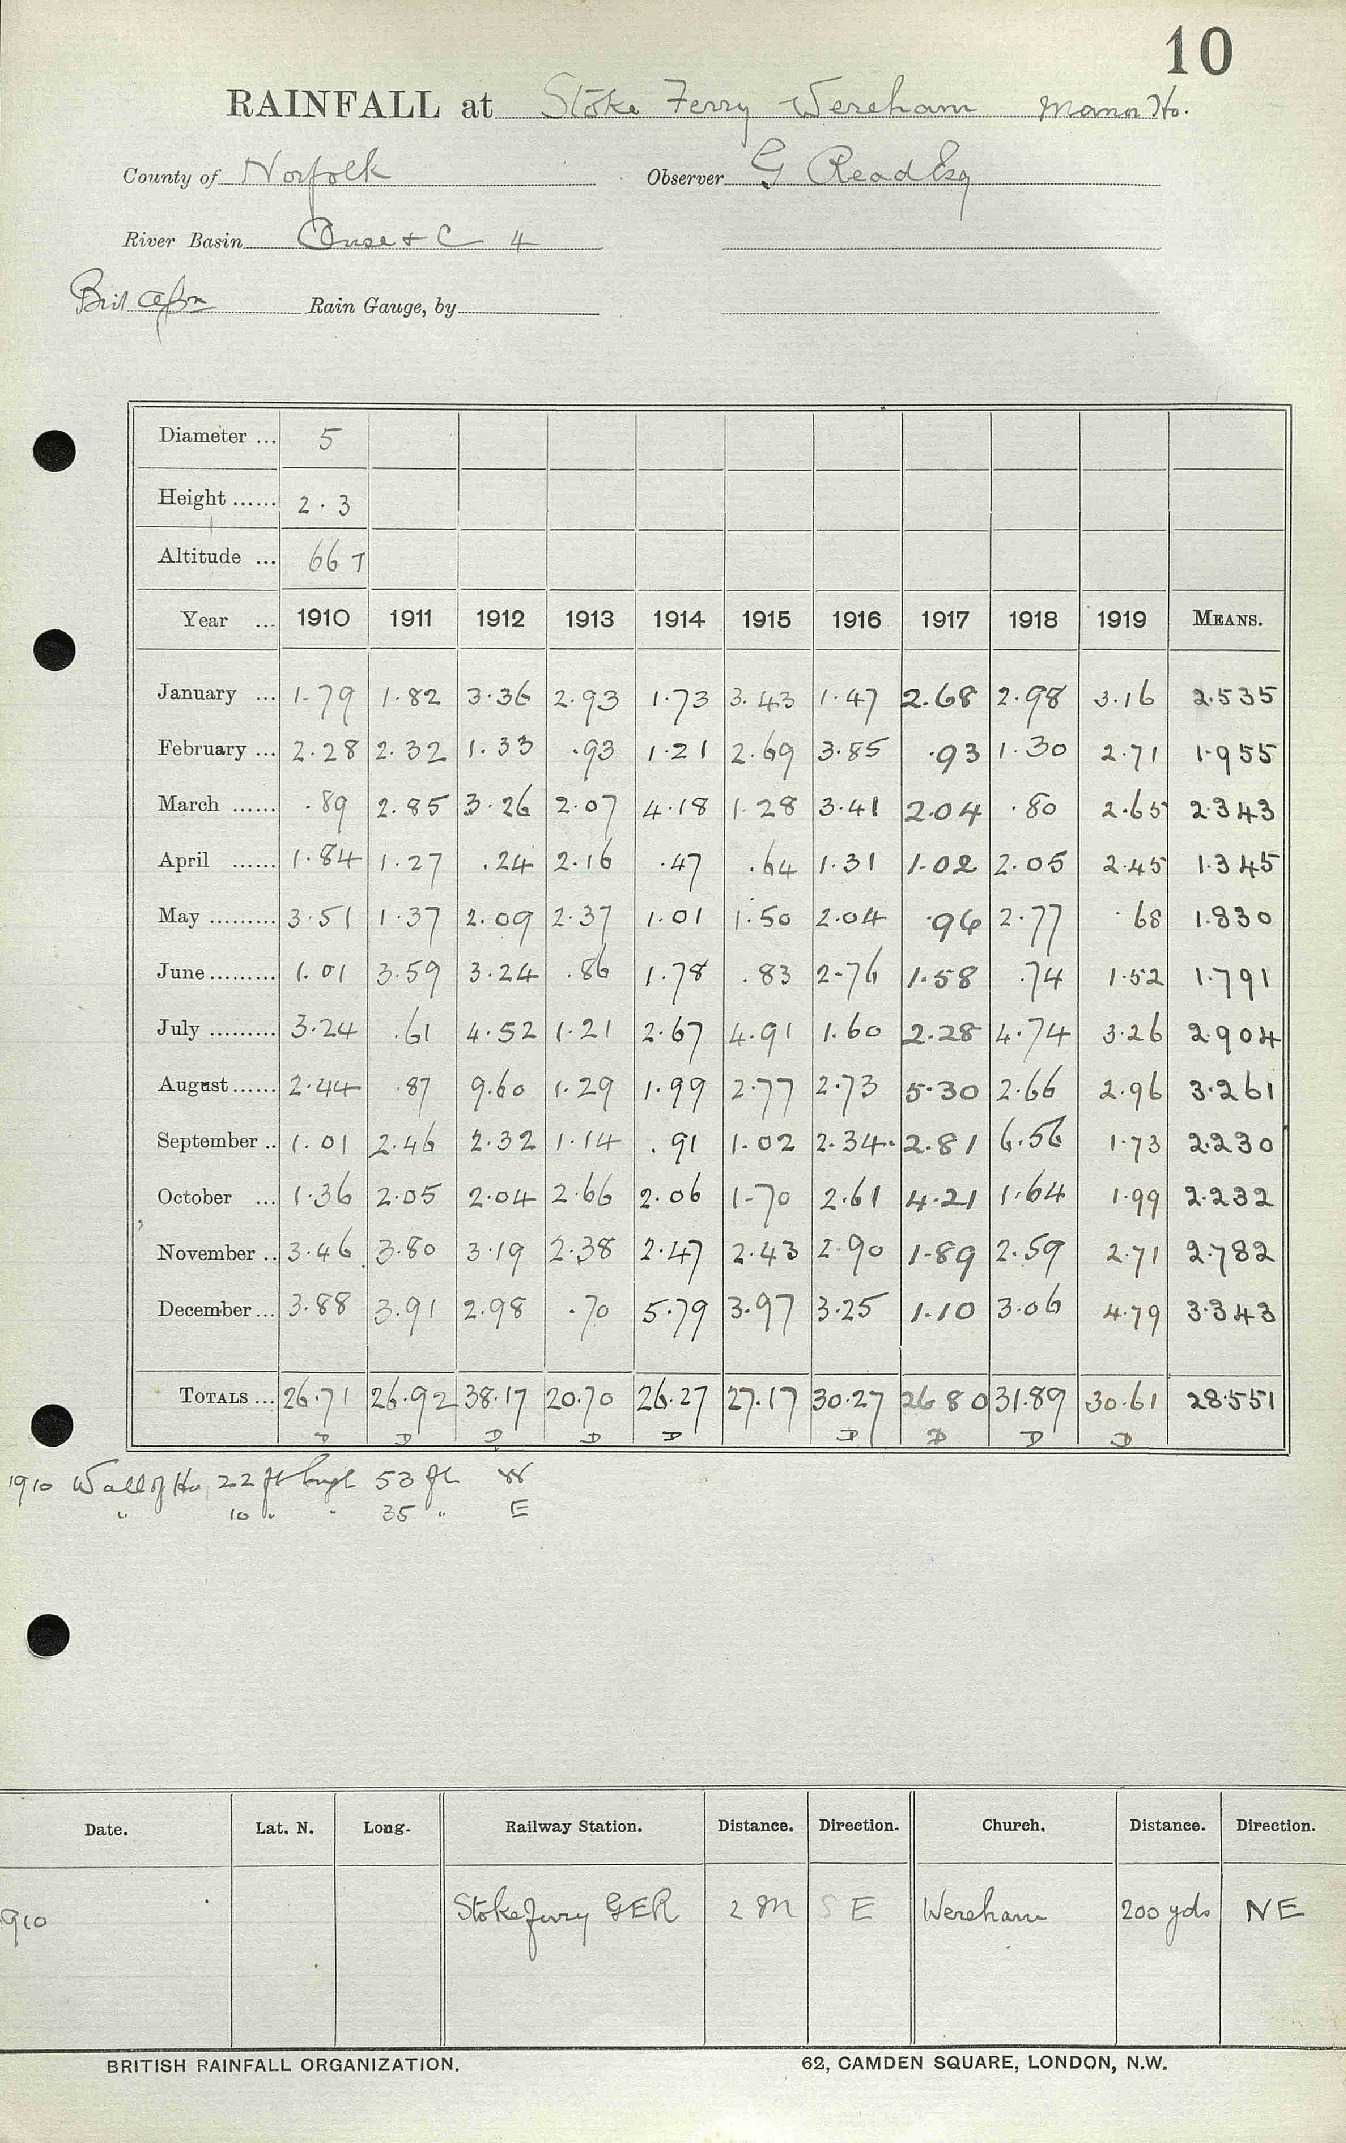 10
RAINFALL at Stoke Ferry Wereham Manor Ho.
County of Norfolk Observer G Read Esq
River Basin Ouse + C 4
Rain Gauge, by
Diameter ... 5
Height ...... 2.3
Altitude ... 66 T
Year ... 1910 1911 1912 1913 1914 1915 1916 1917 1918 1919 MEANS.
January ... 1.79 1.82 3.36 2.93 1.73 3.43 1.47 2.68 2.98 3.16 2.535
February ... 2.28 2.32 1.33 .93 1.21 2.69 3.85 .93 1.30 2.71 1.955
March ...... .89 2.85 3.26 2.07 4.18 1.28 3.41 2.04 .80 2.65 2.343
April ...... 1.84 1.27 .24 2.16 .47 .64 1.31 1.02 2.05 2.45 1.345
May ......... 3.51 1.37 2.09 2.37 1.01 1.50 2.04 .96 2.77 .68 1.830
June ......... 1.01 3.59 3.24 .86 1.78 .83 2.76 1.58 .74 1.52 1.791
July ......... 3.24 .61 4.52 1.21 2.67 4.91 1.60 2.28 4.74 3.26 2.904
August ...... 2.44 .87 9.60 1.29 1.99 2.77 2.73 5.30 2.66 2.96 3.261
September .. 1.01 2.46 2.32 1.14 .91 1.02 2.34 2.81 6.56 1.73 2.230
October ... 1.36 2.05 2.04 2.66 2.06 1.70 2.61 4.21 1.64 1.99 2.232
November .. 3.46 3.80 3.19 2.38 2.47 2.43 2.90 1.89 2.59 2.71 2.782
December ... 3.88 3.91 2.98 .70 5.79 3.97 3.25 1.10 3.06 4.79 3.343
TOTALS ... 26.71 26.92 38.17 20.70 26.27 27.17 30.27 26.80 31.89 30.61 28.551
D D D D D D D D D
1910 Wall of Ho 22 ft high 53 ft W
" 10 " " 35 " E
Date. Lat. N. Long. Railway Station. Distance. Direction. Church. Distance. Direction.
910 Stoke Ferry GER 2 M S E Wereham 200 yds NE
BRITISH RAINFALL ORGANIZATION. 62, CAMDEN SQUARE, LONDON, N.W.